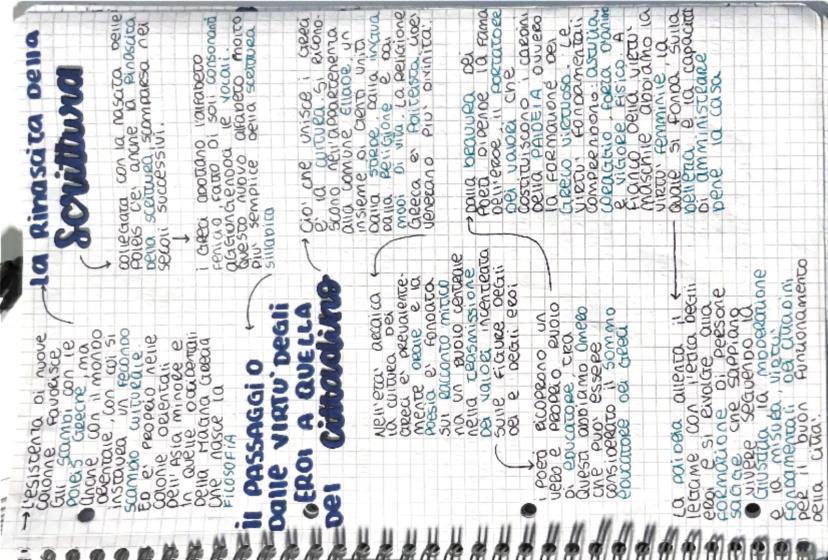 → L'esistenza di nuove
colonie favorisce
gli scambi con le
poleis greche, ma
anche con il mondo
orientale, con cui si
instaura un fecondo
scambio culturale.
Ed è proprio nelle
colonie orientali
dell'Asia minore e
in quelle occidentali
della Magna Grecia
che nasce la
FILOSOFIA
La Rinascita della
Scrittura
collegata con la nascita delle
poleis c'è anche la rinascita
della scrittura scomparsa nei
secoli successivi.
i Greci adottano l'alfabeto
fenicio fatto di soli consonanti
aggiungendo le vocali.
questo nuovo alfabeto molto
più semplice della scrittura
sillabica
il PASSAGGIO
dalle VIRTU' DEGLI
EROI A QUELLA
DEL cittadino
Ciò che unisce i Greci
è la cultura. Si ricono-
scono nell'appartenenza
alla comune Ellade, un
insieme di genti unità
dalla stirpe, dalla lingua
dalla religione e dai
modi di vita. La religione
greca è politeista, cioè
venerano più divinità.
Nell'età arcaica
la cultura dei
Greci è prevalente-
mente orale e la
poesia è fondata
sul racconto mitico
ha un ruolo centrale
nella trasmissione
dei valori incentrata
sulle figure degli
dei e degli eroi
i poeti ricoprono un
vero e proprio ruolo
di educatore tra
questi abbiamo Omero
che può essere
considerato il sommo
educatore dei Greci
dalla bravura del
poeta dipende la fama
dell'eroe, il portatore
dei valori che
costituiscono i cardini
della PAIDEIA ovvero
la formazione del
Greco virtuoso. Le
virtù fondamentali
comprendono: astuzia,
coraggio, forza d'animo
e vigore fisico. A
fianco della virtù
maschile abbiamo la
virtù femminile la
quale si fonda sulla
bellezza e la capacità
di amministrare
bene la casa
La paideia allenta il
legame con l'etica degli
eroi e si evolge alla
formazione di persone
sagge che sappiano
vivere seguendo la
Giustizia, la moderazione
e la misura, virtù
fondamentali dei cittadini
per il buon funzionamento
della città.